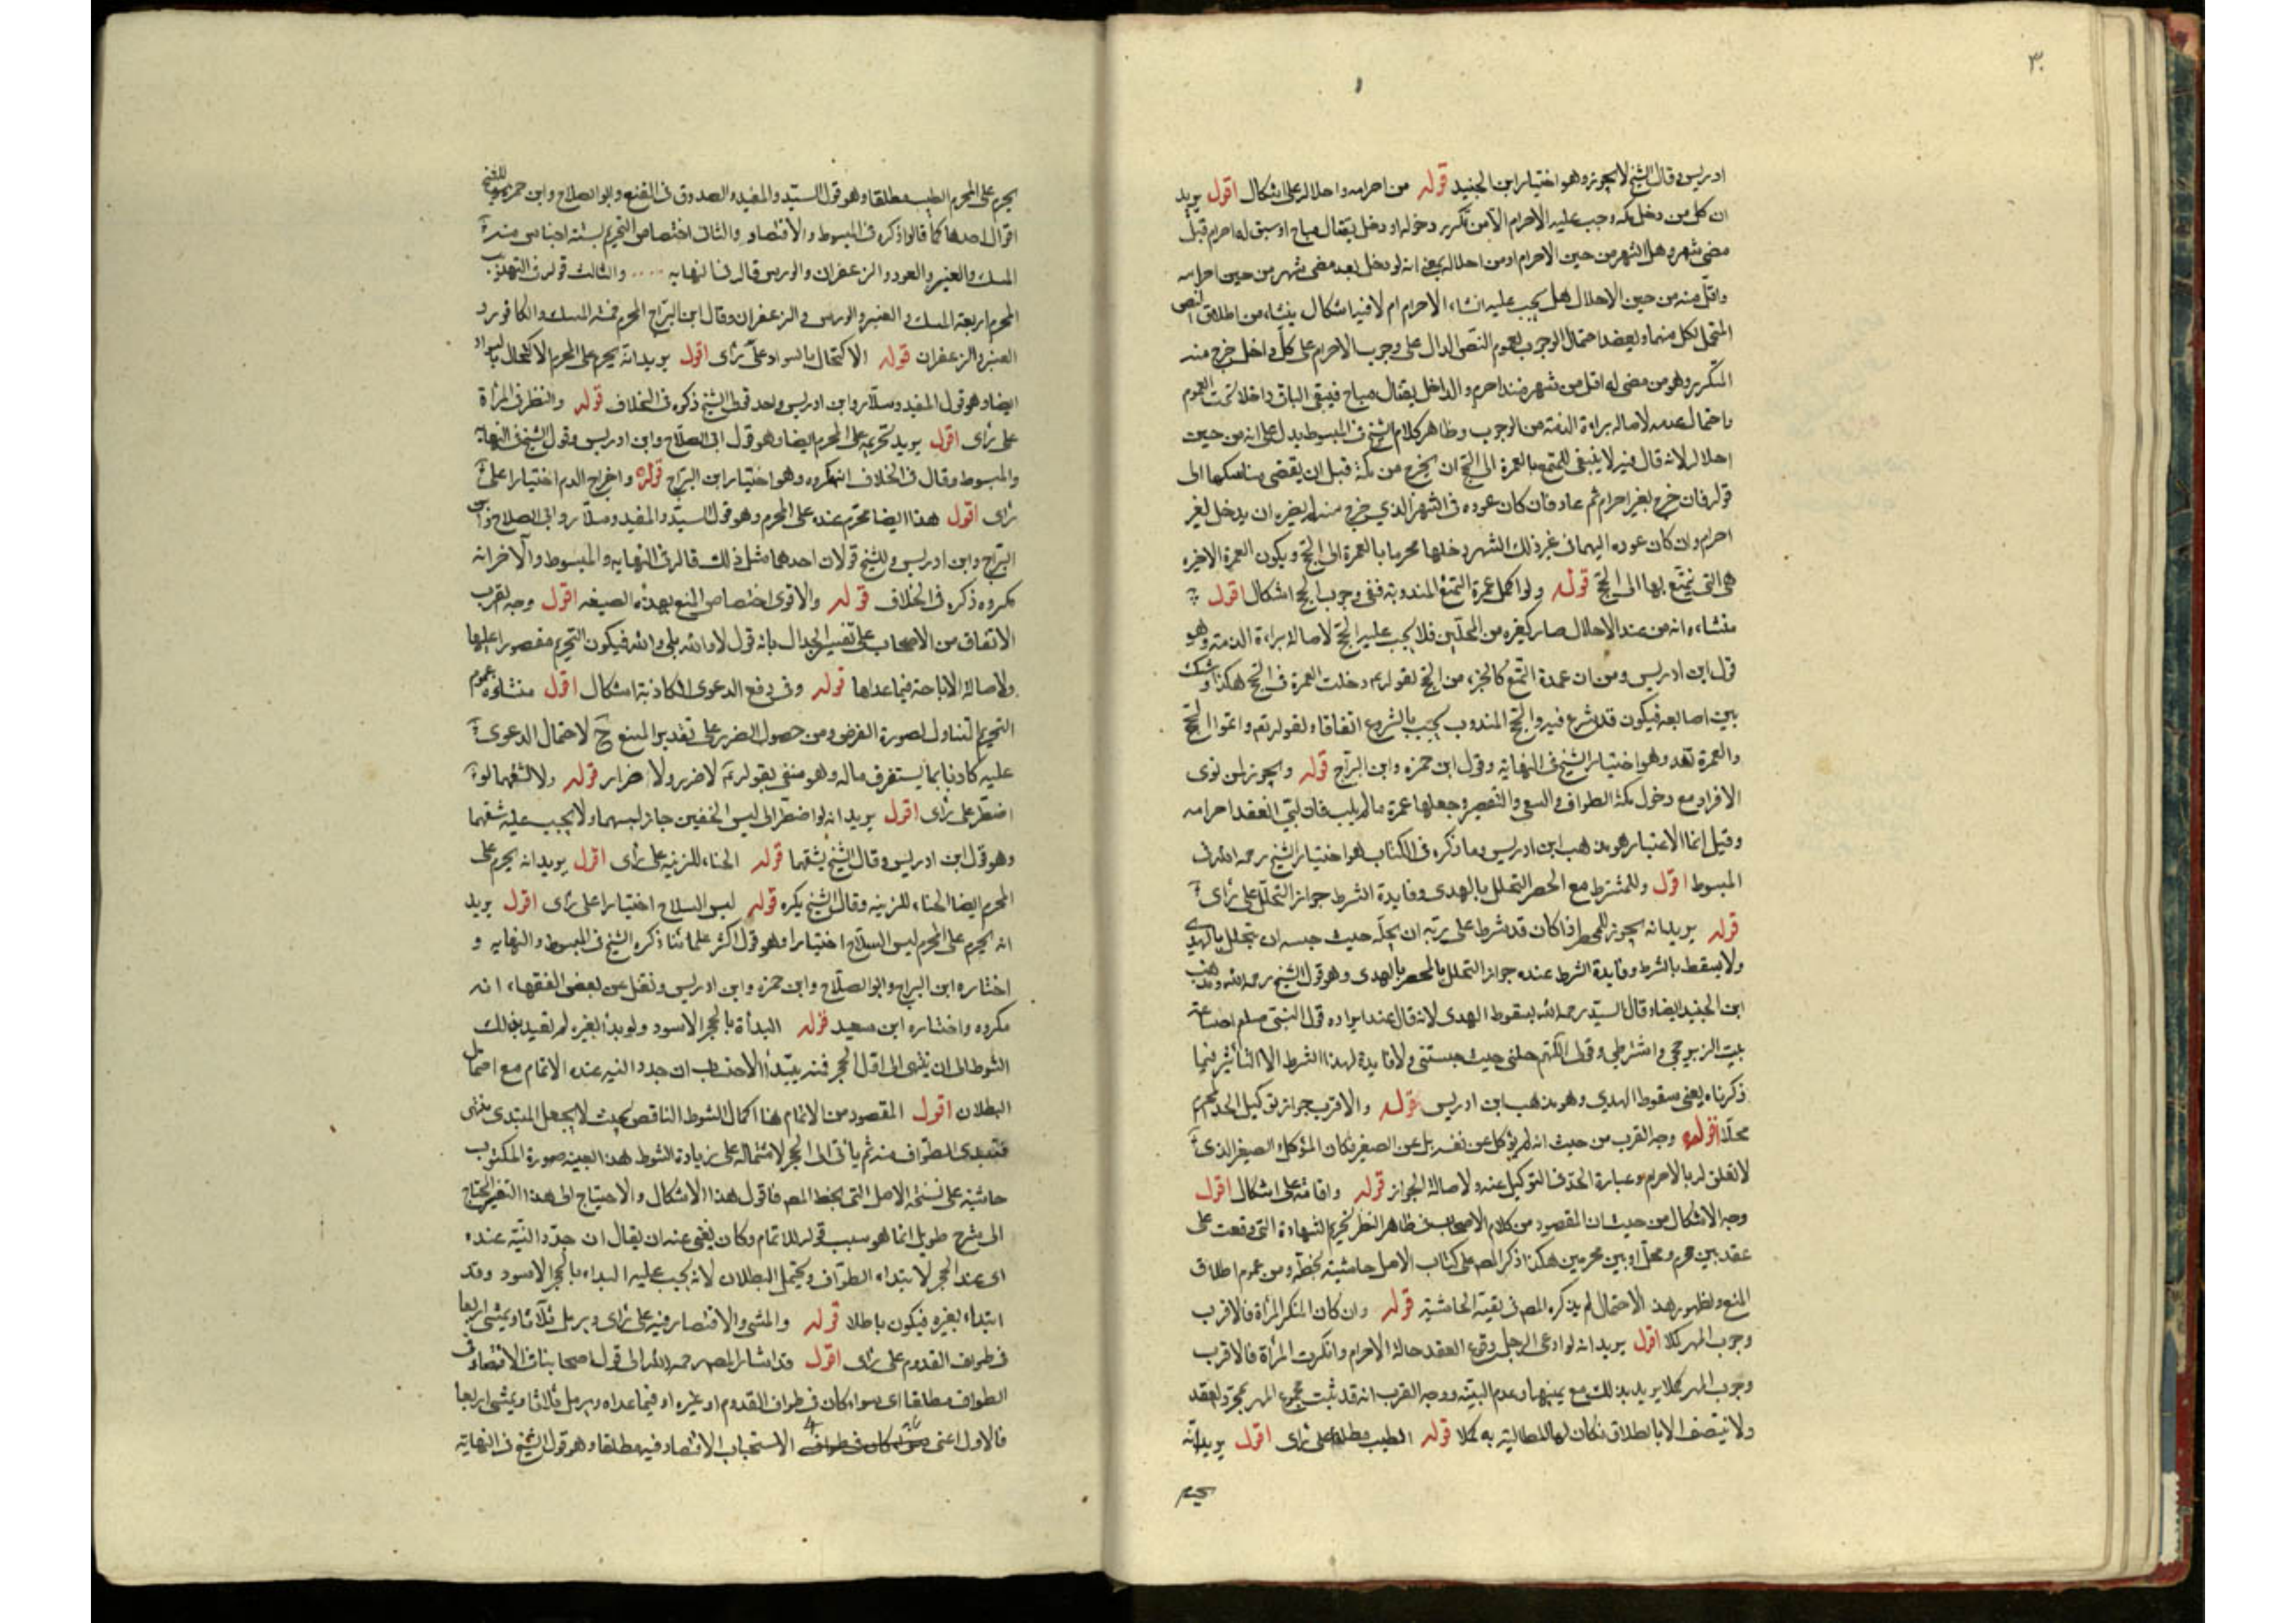 ٣٠
ادريس وقال الشيخ لا يجوز وهو اختيار ابن الجنيد قوله من احرامه واحلاله على اشكال اقول يريد
ان كل من دخل مكة وجب عليه الاحرام الا من تكرر دخوله او دخل بقتال مباح او سبق له احرام قبل
مضى شهر وهل الشهر من حين الاحرام او من احلاله بمعنى انه لو دخل بعد مضى شهر من حين احرامه
واقل منه من حين الاحلال هل يجب عليه انشاء الاحرام ام لا فيه اشكال ينشاء من اطلاق النص
المتحمل لكل منهما ويعضد احتمال الوجوب لعموم النص الدال على وجوب الاحرام على كل داخل خرج منه
المتكرر وهو من مضى له اقل من شهر منذ احرم والداخل بقتال مباح فيبقى الباقي داخلا تحت العموم
واحتمال عدمه لاصاله براءة الذمة من الوجوب وظاهر كلام الشيخ فى المبسوط يدل على انه من حين
احلاله لانه قال فيه لا ينبغى للمتمتع بالعمرة الى الحج ان يخرج من مكة قبل ان يقضى مناسكها الى
قوله فان خرج بغير احرام ثم عاد فان كان عوده فى الشهر الذي خرج منه لم يضره ان يدخل بغير
احرام وان كان عوده اليها فى غير ذلك الشهر دخلها محرما بالعمرة الى الحج ويكون العمرة الاخيره
هى التى يتمتع بها الى الحج قوله ولو اكمل عمرة التمتع المندوبة ففى وجوب الحج اشكال اقول
منشاءه انه من عند الاحلال صار كغيره من المحلين فلا يجب عليه الحج لاصالة براءة الذمة وهو
قول ابن ادريس ومن ان عمرة التمتع كالجزء من الحج لقوله عم دخلت العمرة فى الحج هكذا وشبك
بين اصابعه فيكون قد شرع فيه والحج المندوب يجب بالشروع اتفاقا ولقوله تعم واتموا الحج
والعمرة لله وهو اختيار الشيخ فى النهاية وقول ابن حمزه وابن البراج قوله ويجوز لمن نوى
الافراد مع دخول مكة الطواف والسعى والتقصير وجعلها عمرة ما لم يلب فان لبى انعقد احرامه
وقيل انما الاعتبار هو مذهب ابن ادريس وما ذكره فى الكتاب هو اختيار الشيخ رحمه الله فى
المبسوط اقول وللمشترط مع الحصر التحلل بالهدى وفايدة الشرط جواز التحلل على رأى
قوله يريد انه يجوز للمحصر اذا كان قد شرط على ربه ان يحله حيث حبسه ان يتحلل بالهدى
ولا يسقط بالشرط وفايدة الشرط عنده جواز التحلل بالحصر بالهدى وهو قول الشيخ رحمه الله ومذهب
ابن الجنيد ايضا وقال السيد رحمه الله بسقوط الهدى لانه قال عند ايراده قول النبى صلعم لضباعة
بنت الزبير حجى واشترطى وقولى اللهم حلنى حيث حبستنى ولا فايدة لهذا الشرط الا التأثير فيما
ذكرناه يعنى سقوط الهدى وهو مذهب ابن ادريس قوله والاقرب جواز توكيل الجد المحرم
محلا اقول وجه القرب من حيث انه لم يوكل عن نفسه بل عن الصغير فكان الموكل الصغير الذى
لا تعلق له بالاحرام وعبارة الجد فى التوكيل عنه ولاصالة الجواز قوله واقامته على اشكال اقول
وجه الاشكال من حيث ان المقصود من كلام الاصحاب فى ظاهر النظر تحريم الشهادة التى وقعت على
عقد بين محرم ومحل او بين محرمين هكذا ذكر المص على كتاب الاصل حاشية بخطه ومن عموم اطلاق
المنع ولظهور هذا الاحتمال لم يذكره المص فى بقية الحاشية قوله وان كان المنكر المرأة فالاقرب
وجوب المهر كملا اقول يريد انه لو ادعى الرجل وقوع العقد حالة الاحرام وانكرت المرأة فالاقرب
وجوب المهر كملا يريد بذلك مع يمينها وعدم البينة ووجه القرب انه قد ثبت جميع المهر بمجرد العقد
ولا ينتصف الا بالطلاق فكان لها المطالبة به كملا قوله الطيب مطلقا على رأى اقول يريد انه
يحرم
يحرم على المحرم الطيب مطلقا وهو قول السيد والمفيد والصدوق فى المقنع وابو الصلاح وابن حمزه وللشيخ
اقوال احدها كما قالوا ذكره فى المبسوط والاقتصاد والثانى اختصاص التحريم بستة اجناس منه
المسك والعنبر والعود والزعفران والورس قاله فى النهايه .... والثالث قوله فى التهذيب
المحرم اربعة المسك والعنبر والورس والزعفران وقال ابن البراج المحرم خمسة المسك والكافور و
العنبر والزعفران قوله الاكتحال بالسواد على رأى اقول يريد انه يحرم على المحرم الاكتحال بالسواد
ايضا وهو قول المفيد وسلار وابن ادريس واحد قولى الشيخ ذكره فى الخلاف قوله والنظر فى المرأة
على رأى اقول يريد تحريمه على المحرم ايضا وهو قول ابى الصلاح وابن ادريس وقول الشيخ فى النهاية
والمبسوط وقال فى الخلاف انه مكروه وهو اختيار ابن البراج قوله واخراج الدم اختيارا على
رأى اقول هذا ايضا محرم عنده على المحرم وهو قول السيد والمفيد وسلار وابى الصلاح وابن
البراج وابن ادريس وللشيخ قولان احدهما مثل ذلك قاله فى النهايه والمبسوط والآخر انه
مكروه ذكره فى الخلاف قوله والاقوى اختصاص المنع بهذه الصيغه اقول وجه القرب
الاتفاق من الاصحاب على تفسير الجدال بانه قول لا والله بلى والله فيكون التحريم مقصورا عليها
ولاصالة الاباحة فيما عداها قوله وفى دفع الدعوى الكاذبة اشكال اقول منشاؤه عموم
التحريم المتناول لصورة الفرض ومن حصول الضرر على تقدير المنع ح لاحتمال الدعوى
عليه كاذبا بما يستغرق ماله وهو منفى بقوله عم لا ضرر ولا ضرار قوله ولا يشقهما لو
اضطر على رأى اقول يريد انه لو اضطر الى لبس الخفين جاز لبسهما ولا يجب عليه شقهما
وهو قول ابن ادريس وقال الشيخ يشقهما قوله الحناء للزينة على رأى اقول يريد انه يحرم على
المحرم ايضا الحناء للزينه وقال الشيخ يكره قوله لبس السلاح اختيارا على رأى اقول يريد
انه يحرم على المحرم لبس السلاح اختيارا وهو قول اكثر علمائنا ذكره الشيخ فى المبسوط والنهايه و
اختاره ابن البراج وابو الصلاح وابن حمزه وابن ادريس ونقل عن بعض الفقهاء انه
مكروه واختاره ابن سعيد قوله البدأة بالحجر الاسود ولو بدأ بغيره لم يعتد بذلك
الشوط الى ان ينتهى الى اول الحجر فمنه يبتدأ الاحتساب ان جدد النيه عنده الاتمام مع احتمال
البطلان اقول المقصود من الاتمام هنا اكمال الشوط الناقص بحيث لا يجعل المبتدى منتهى
فيبتدى الطواف منه ثم يأتى الى الحجر لاشتماله على زيادة الشوط هذا بعينه صورة المكتوب
حاشية على نسخة الاصل التى بخط المص فاقول هذا الاشكال والاحتياج الى هذا التفسير المحتاج
الى شرح طويل انما هو سبب قوله للاتمام وكان يغنى عنه ان يقال ان جدد النية عنده
اى عند الحجر لابتداء الطواف ويحتمل البطلان لانه يجب عليه البداء بالحجر الاسود وقد
ابتداء بغيره فيكون باطلا قوله والمشى والاقتصاد فيه على رأى ويرمل ثلاثا ويمشى اربعا
فى طواف القدوم على رأى اقول قد اشار المص رحمه الله الى قول اصحابنا فى الاقتصاد فى
الطواف مطلقا اى سواء كان فى طواف القدوم او غيره او فيما عداه ويرمل ثلاثا ويمشى اربعا
فالاول اعنى الاستحباب الاقتصاد فيه مطلقا وهو قول الشيخ فى النهاية